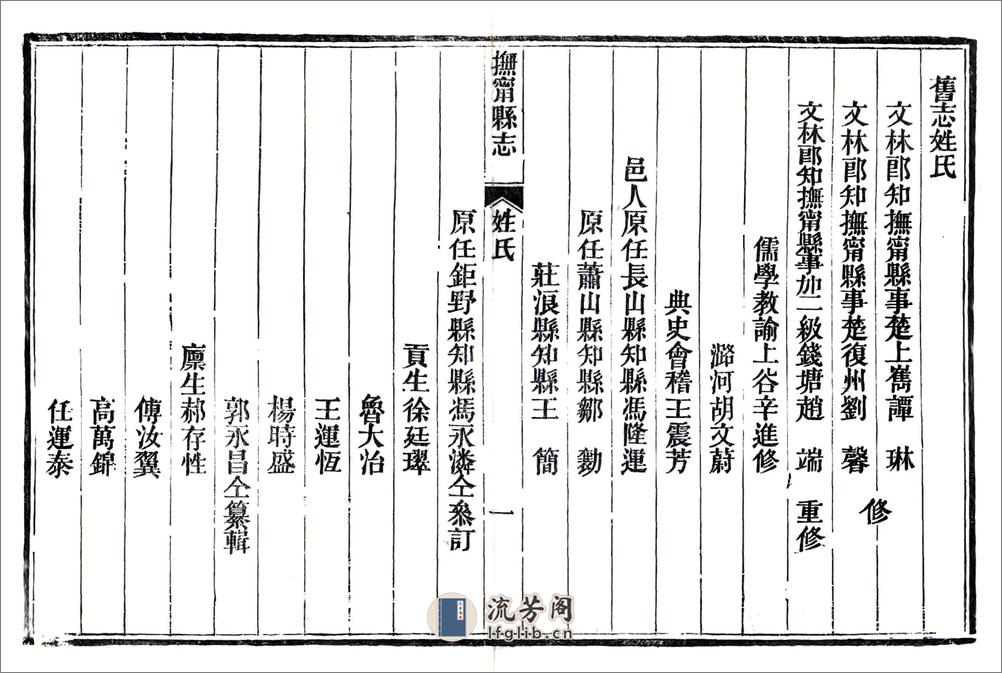 舊志姓氏
文林郎知撫甯縣事楚上雋譚　琳
文林郎知撫甯縣事楚復州劉　馨
修
文林郎知撫甯縣事加二級錢塘趙　端　重修
儒學教諭上谷辛進修
潞河胡文蔚
典史會稽王震芳
邑人原任長山縣知縣馮隆運
原任蕭山縣知縣鄒　勷
莊浪縣知縣王　簡
撫甯縣志
姓氏
一
原任鉅野縣知縣馮永濟仝叅訂
貢生徐廷璻
魯大治
王運恆
楊時盛
郭永昌仝纂輯
廪生郝存性
傅汝翼
高萬錦
任運泰
流芳阁
lfglib.cn